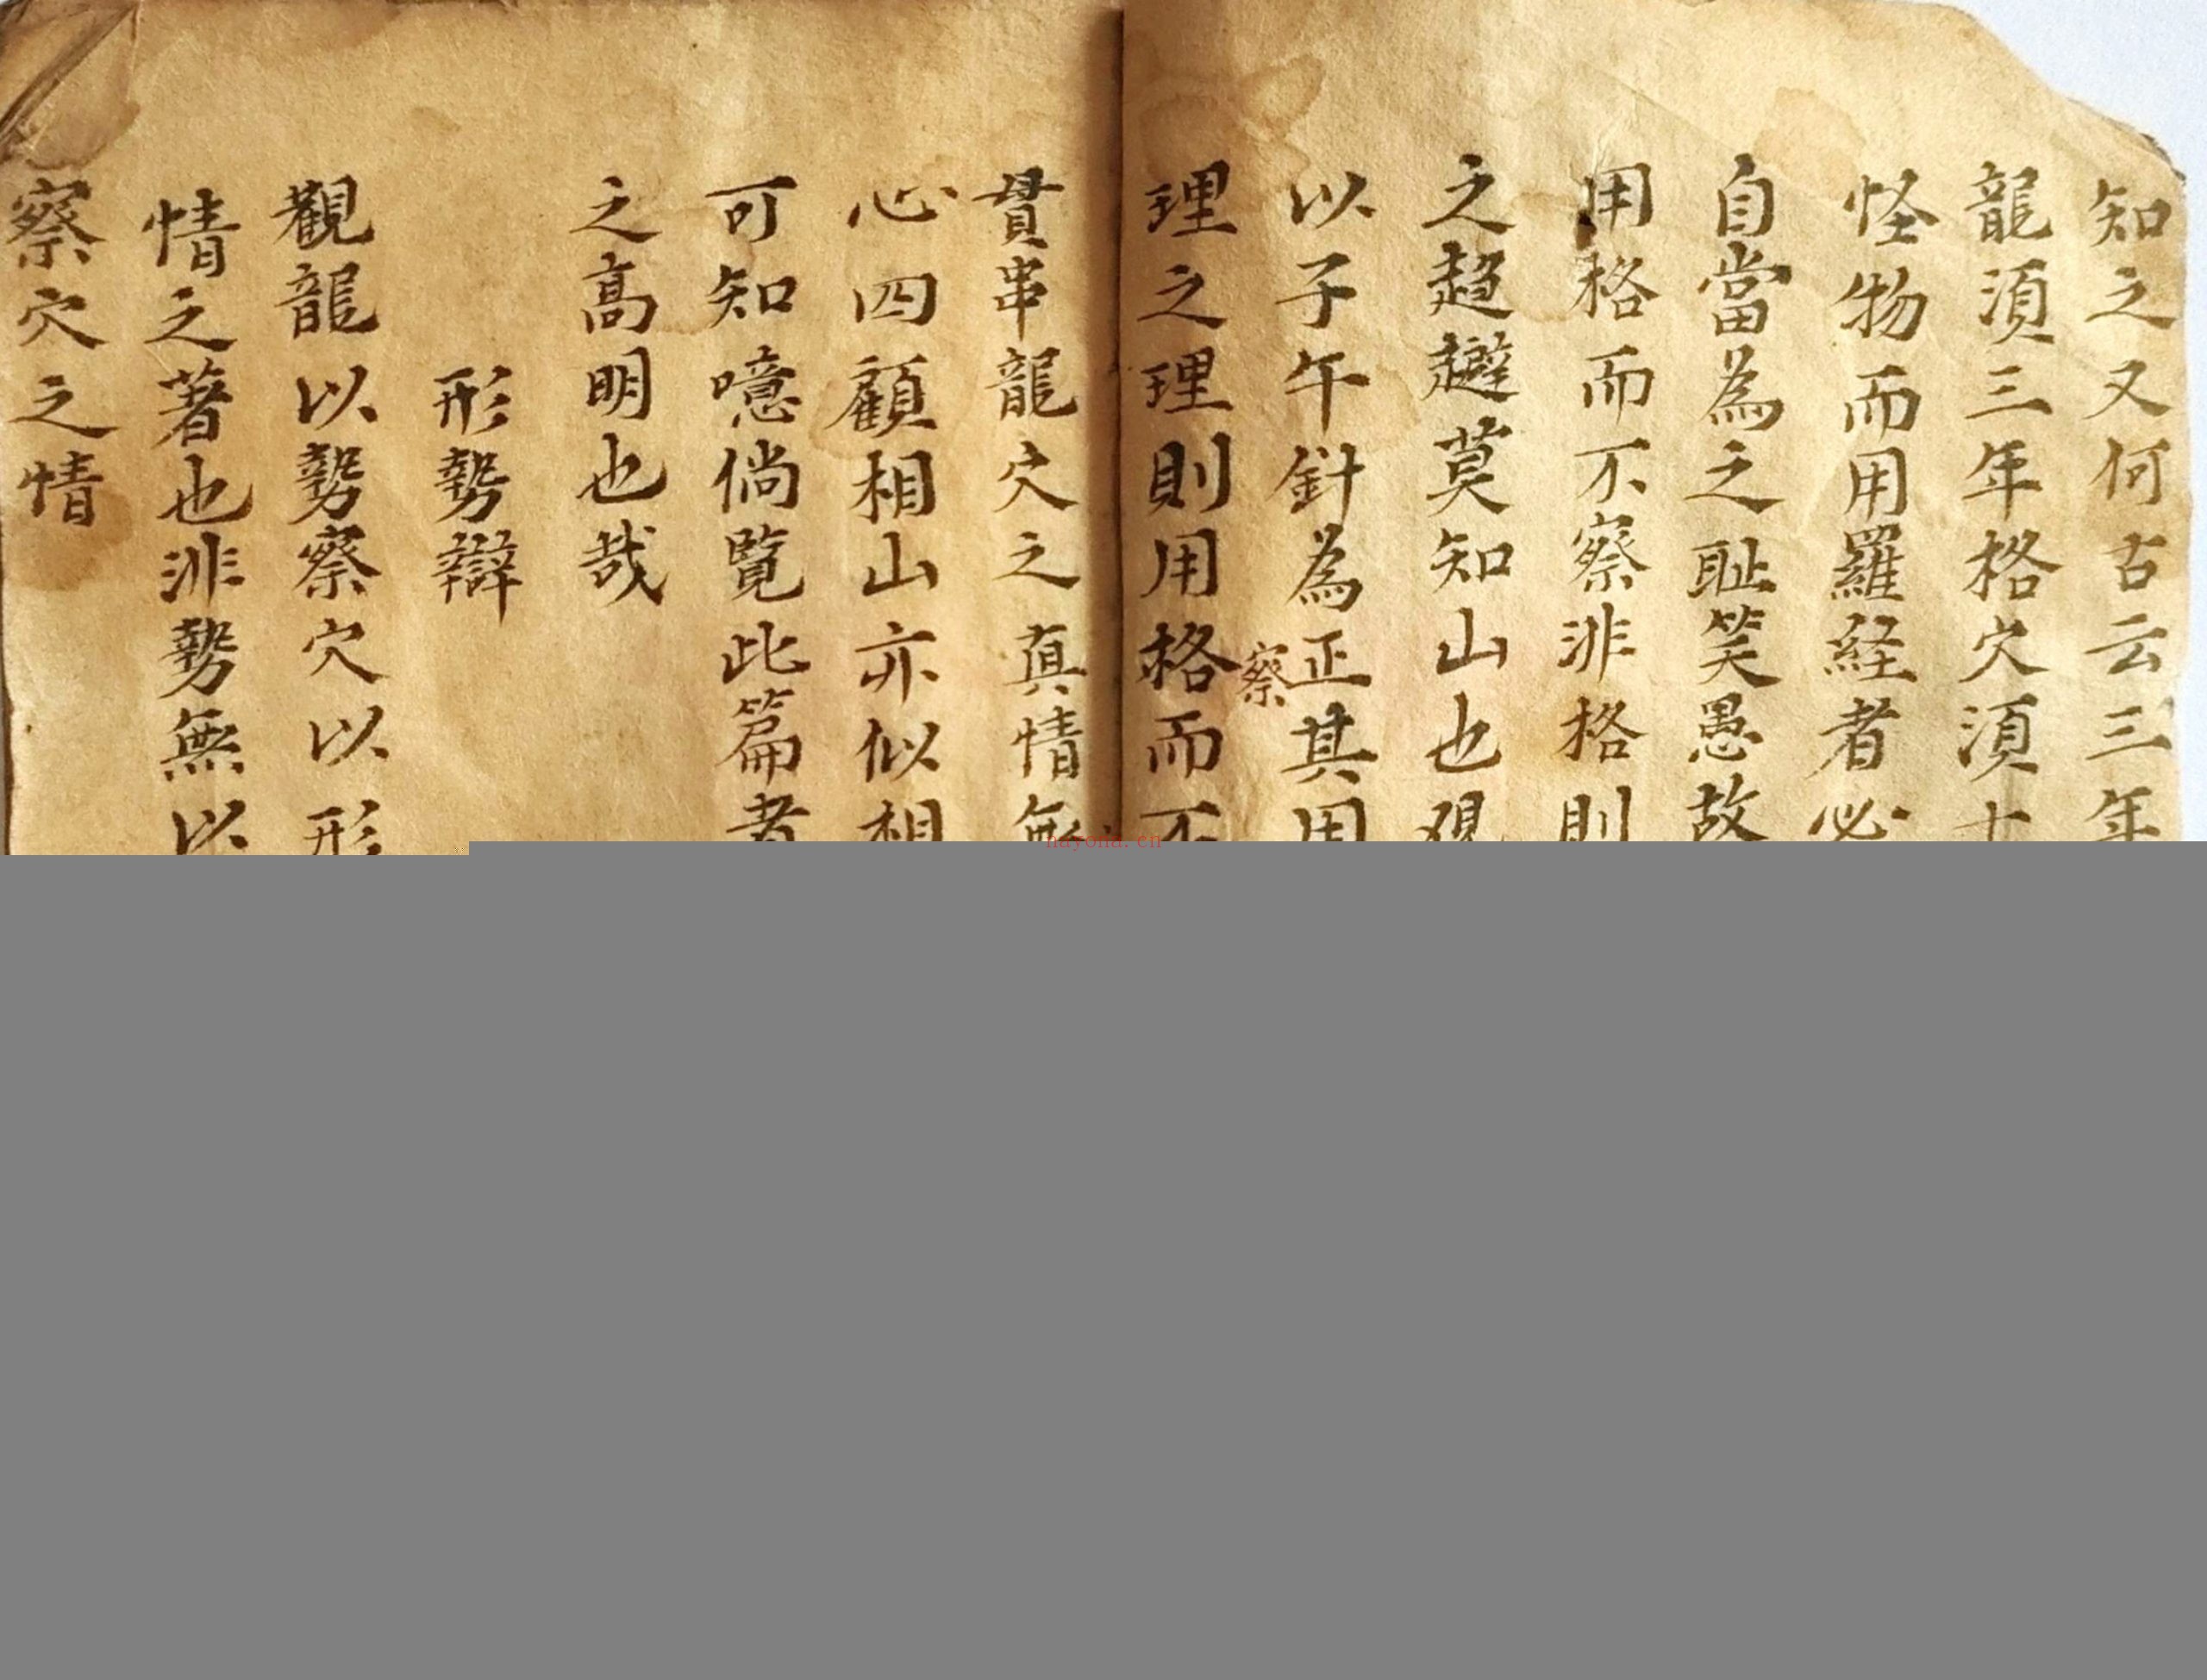 知之又何古云三年
龍湏三年格穴湏十
怪物而用羅経者必
自當為之耻笑愚故
用格而不察非格則
之趋避莫知山也观
以子午針為正其用
察
理之理則用格而不
貫串龍穴之真情無
心四顧相山亦似相
可知噫倘覧此篇者
之高明也哉
形勢辯
觀龍以勢察穴以形
情之著也非勢無以
察穴之情
nayona.cn